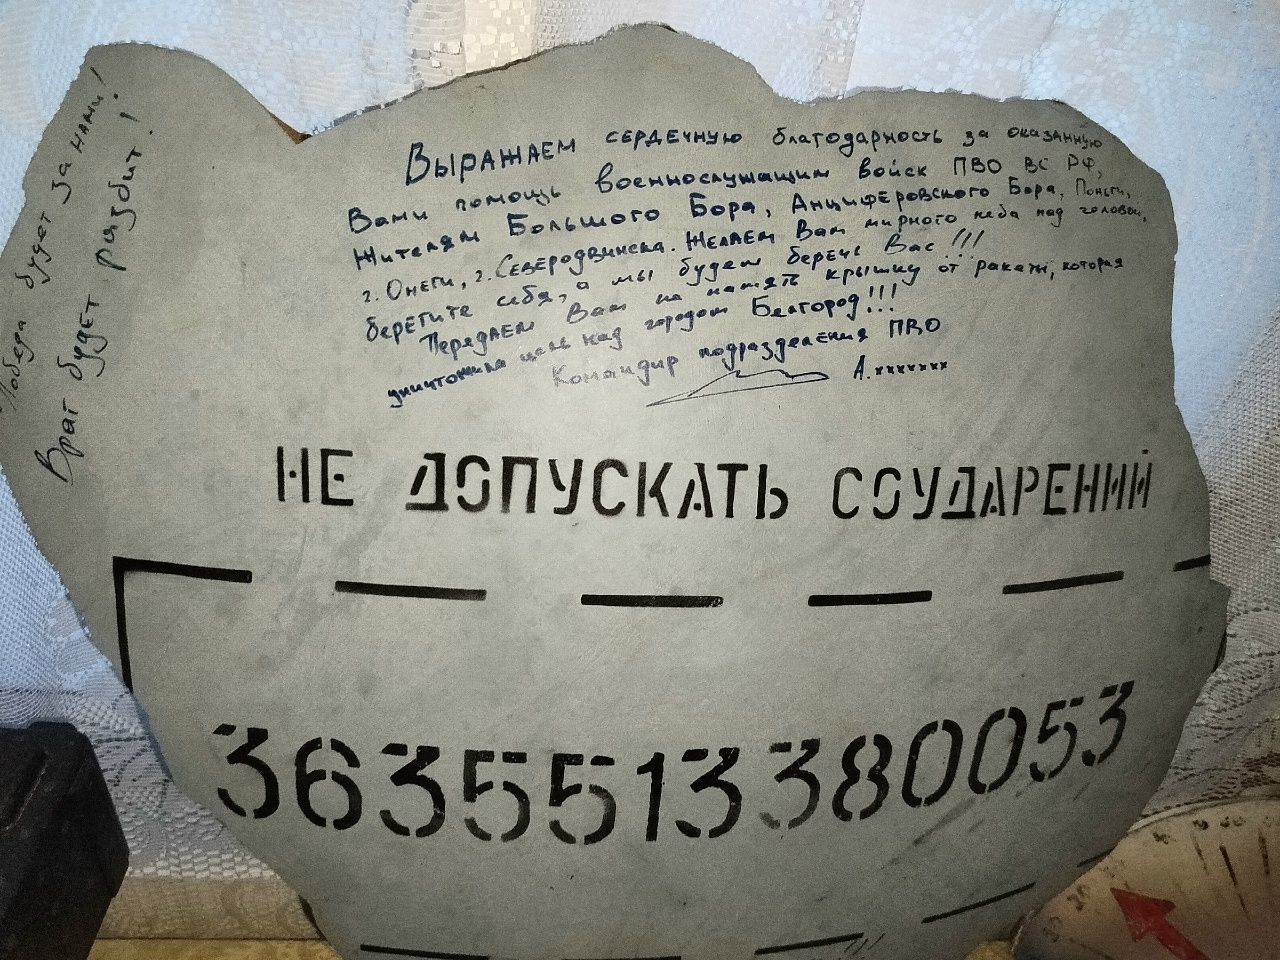 Победа будет за нами!
Враг будет разбит!
Выражаем сердечную благодарность за оказанную
Вами помощь военнослужащим войск ПВО ВС РФ,
Жителям Большого Бора, Анциферовского Бора, Поньги,
г. Онеги, г. Северодвинска. Желаем Вам мирного неба над головой,
берегите себя, а мы будем беречь Вас!!!
Передаем Вам на память крышку от ракеты, которая
уничтожила цель над городом Белгород!!!
Командир подразделения ПВО
А.xxxxxxx
НЕ ДОПУСКАТЬ СОУДАРЕНИЙ
3635513380053
20